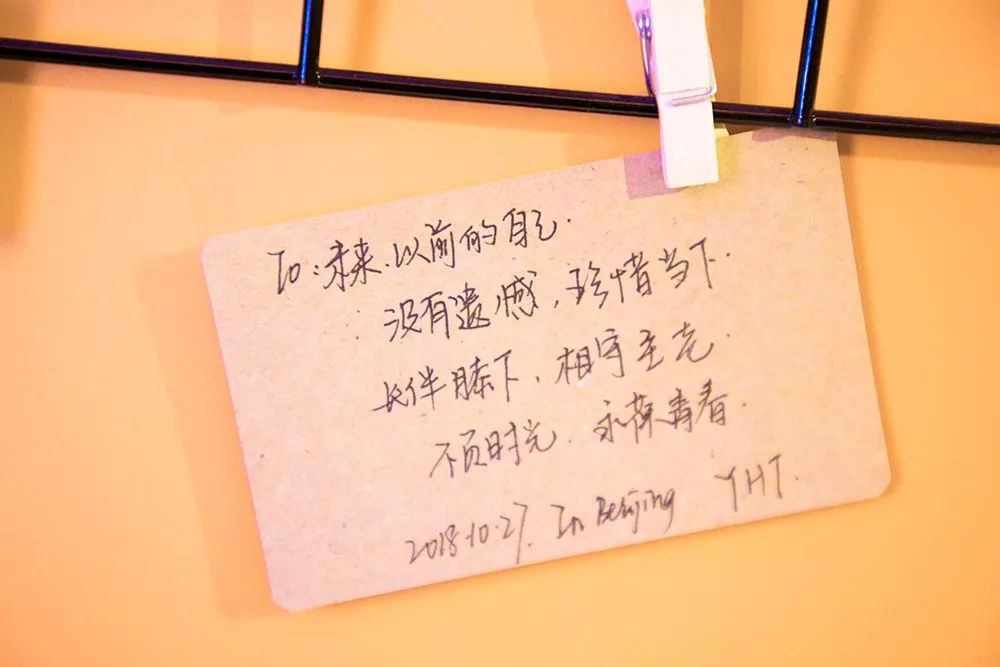 To:未来、以前的自己.
没有遗憾,珍惜当下.
长伴膝下,相守至老.
不负时光.永葆青春.
2018.10.27. In Beijing YHT.